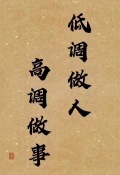 低调做人
高调做事